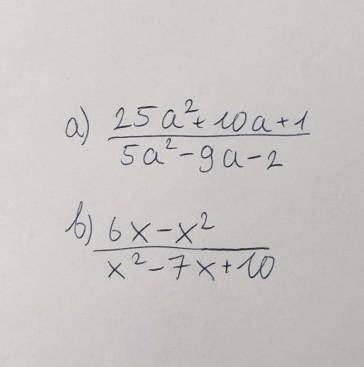 a) 25a²+10a+1
5a²-9a-2
b) 6x-x²
x²-7x+10